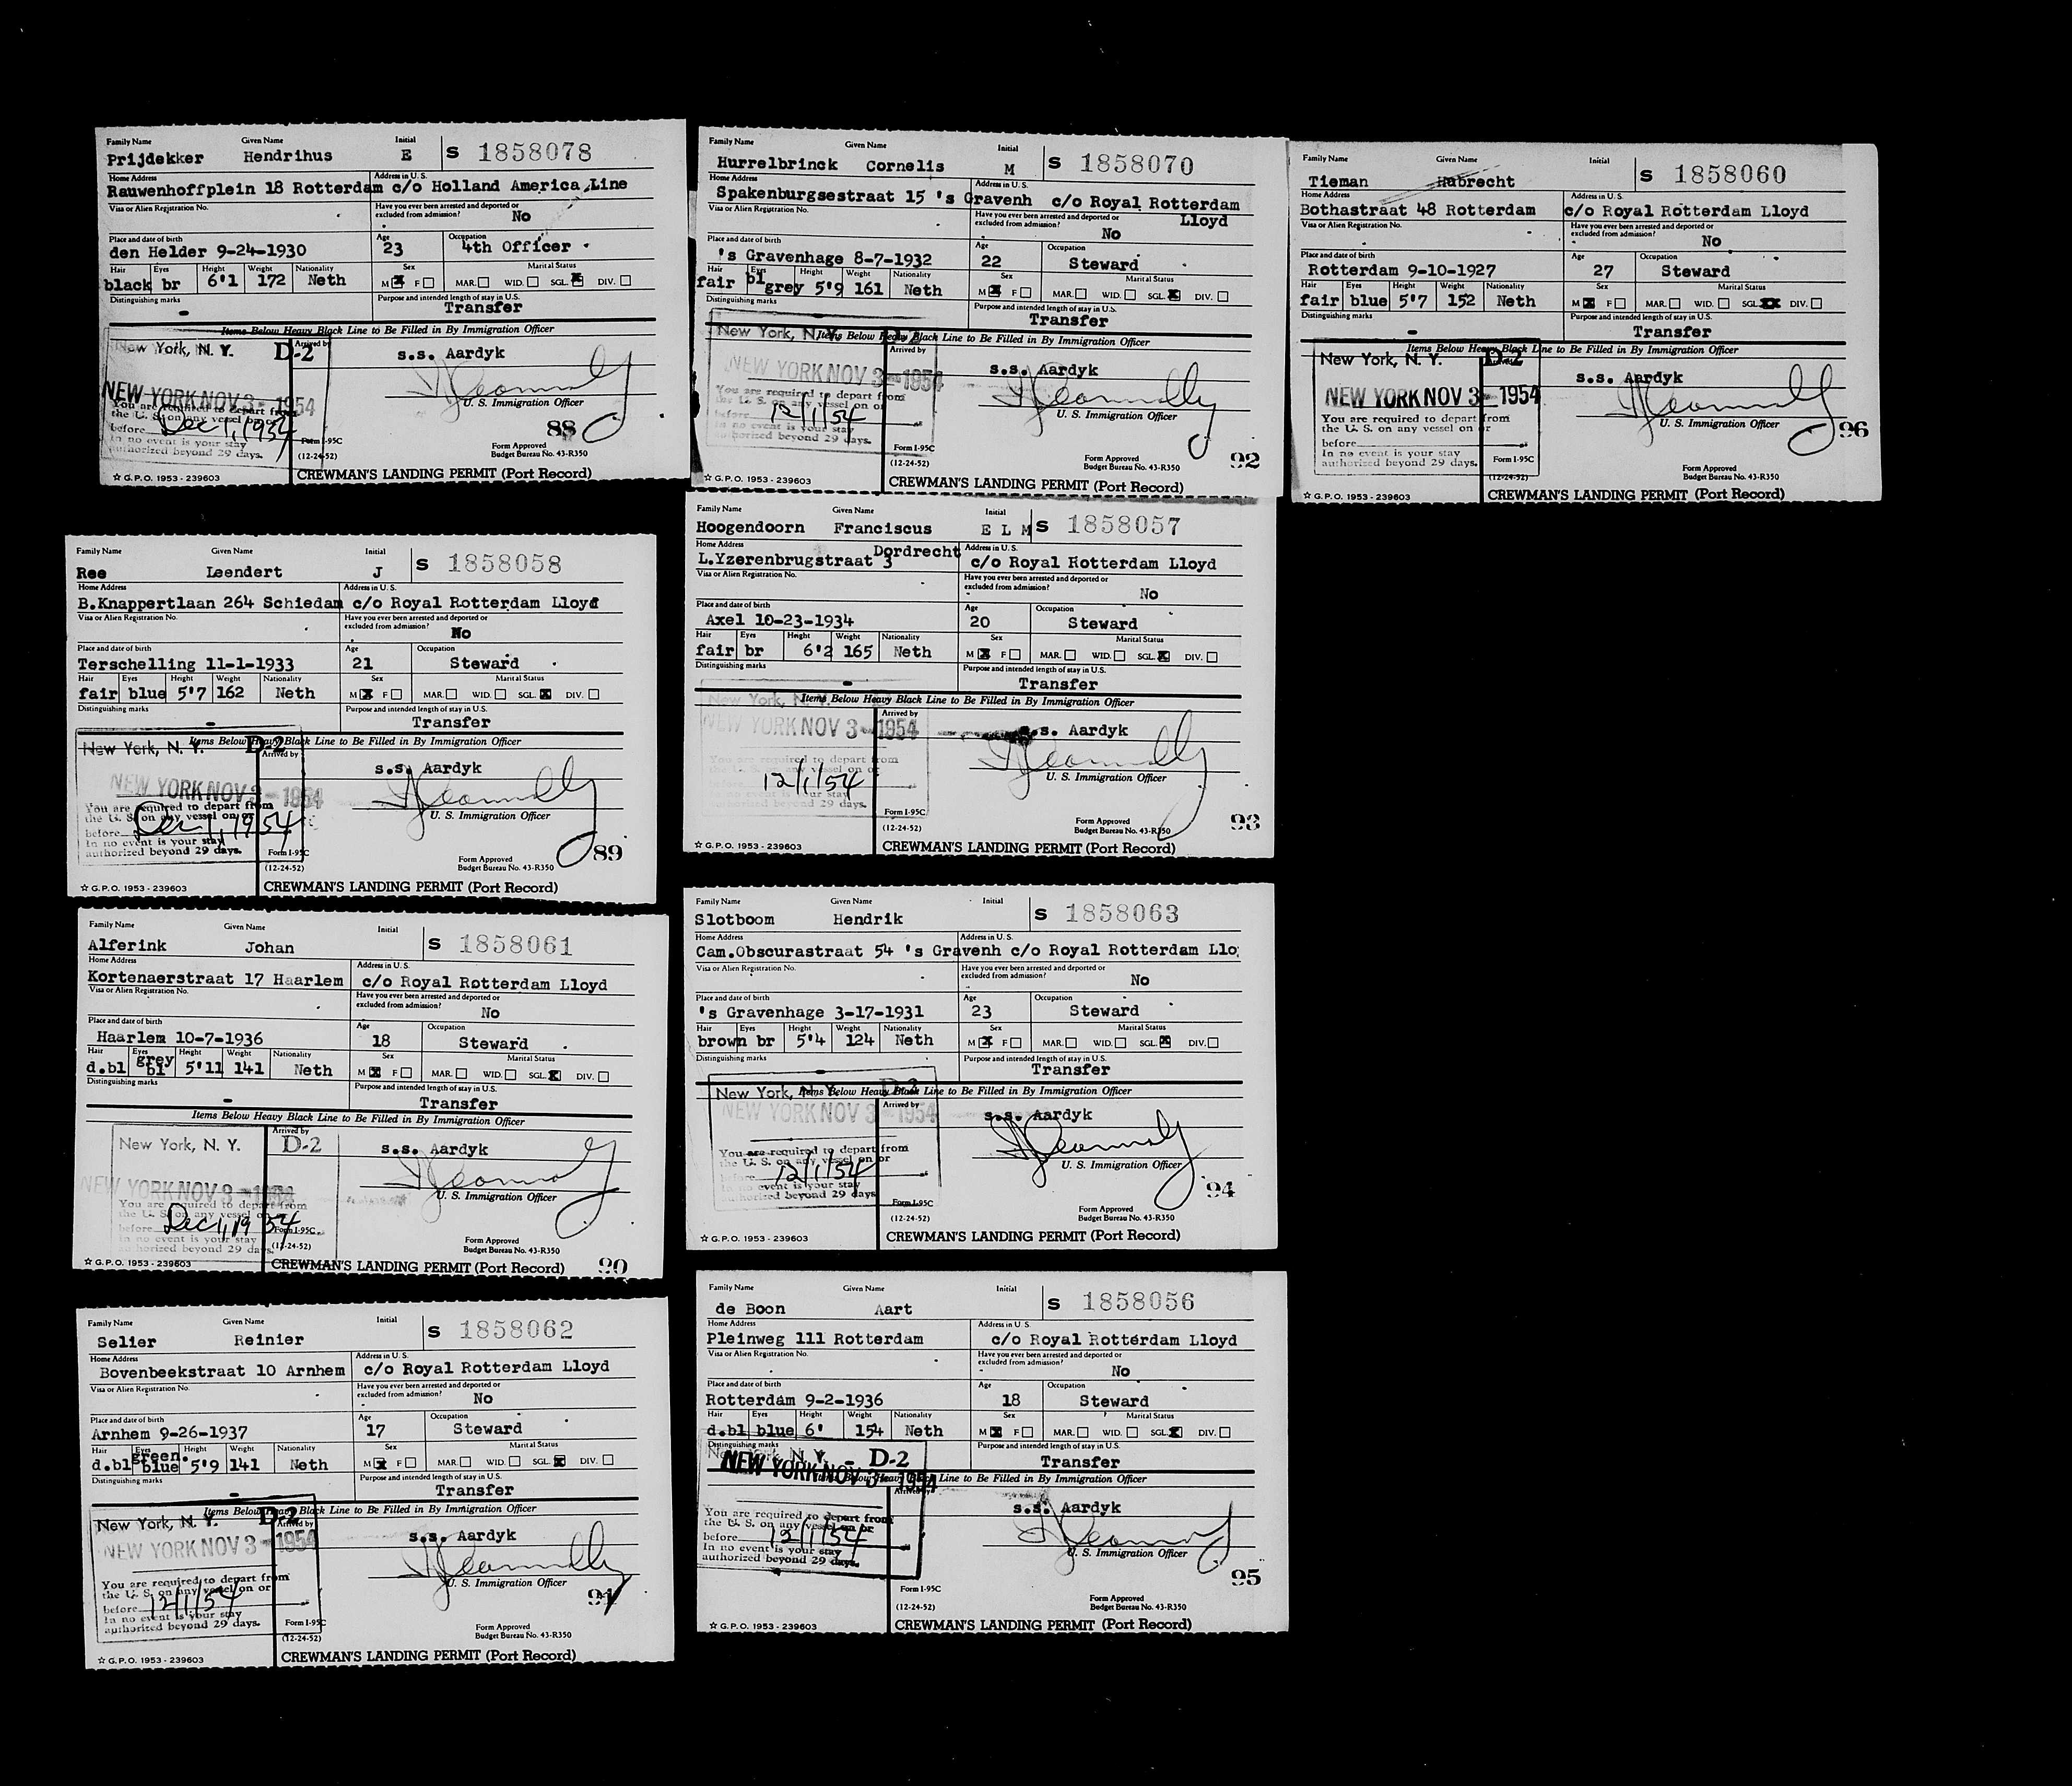 Family Name Given Name Initial
Prijdekker Hendrihus E S 1858078
Home Address Address in U.S.
Rauwenhoffplein 18 Rotterdam c/o Holland America Line
Visa or Alien Registration No. Have you ever been arrested and deported or
excluded from admission? No
Place and date of birth Age Occupation
den Helder 9-24-1930 23 4th Officer
Hair Eyes Height Weight Nationality Sex Marital Status
black br 6'1 172 Neth M F MAR. WID. SGL. DIV.
Distinguishing marks Purpose and intended length of stay in U.S.
- Transfer
Items Below Heavy Black Line to Be Filled in By Immigration Officer
New York, N. Y. D-2 Arrived by
s.s. Aardyk
NEW YORK NOV 3 - 1954
You are required to depart from
the U. S. on any vessel on or
before Dec 1, 1954
In no event is your stay
authorized beyond 29 days.
U. S. Immigration Officer
88
Form I-95C
(12-24-52)
Form Approved
Budget Bureau No. 43-R350
☆ G.P.O. 1953 - 239603 CREWMAN'S LANDING PERMIT (Port Record)
Family Name Given Name Initial
Ree Leendert J S 1858058
Home Address Address in U.S.
B.Knappertlaan 264 Schiedam c/o Royal Rotterdam Lloyd
Visa or Alien Registration No. Have you ever been arrested and deported or
excluded from admission? No
Place and date of birth Age Occupation
Terschelling 11-1-1933 21 Steward
Hair Eyes Height Weight Nationality Sex Marital Status
fair blue 5'7 162 Neth M F MAR. WID. SGL. DIV.
Distinguishing marks Purpose and intended length of stay in U.S.
- Transfer
Items Below Heavy Black Line to Be Filled in By Immigration Officer
New York, N. Y. D-2 Arrived by
s.s. Aardyk
NEW YORK NOV 3 - 1954
You are required to depart from
the U. S. on any vessel on or
before Dec 1, 1954
In no event is your stay
authorized beyond 29 days.
U. S. Immigration Officer
89
Form I-95C
(12-24-52)
Form Approved
Budget Bureau No. 43-R350
☆ G.P.O. 1953 - 239603 CREWMAN'S LANDING PERMIT (Port Record)
Family Name Given Name Initial
Alferink Johan S 1858061
Home Address Address in U.S.
Kortenaerstraat 17 Haarlem c/o Royal Rotterdam Lloyd
Visa or Alien Registration No. Have you ever been arrested and deported or
excluded from admission? No
Place and date of birth Age Occupation
Haarlem 10-7-1936 18 Steward
Hair Eyes Height Weight Nationality Sex Marital Status
d.bl grey bl 5'11 141 Neth M F MAR. WID. SGL. DIV.
Distinguishing marks Purpose and intended length of stay in U.S.
- Transfer
Items Below Heavy Black Line to Be Filled in By Immigration Officer
New York, N. Y. Arrived by D-2
s.s. Aardyk
NEW YORK NOV 3 - 1954
You are required to depart from
the U. S. on any vessel on or
before Dec 1, 1954
In no event is your stay
authorized beyond 29 days.
U. S. Immigration Officer
90
Form I-95C
(12-24-52)
Form Approved
Budget Bureau No. 43-R350
☆ G.P.O. 1953 - 239603 CREWMAN'S LANDING PERMIT (Port Record)
Family Name Given Name Initial
Selier Reinier S 1858062
Home Address Address in U.S.
Bovenbeekstraat 10 Arnhem c/o Royal Rotterdam Lloyd
Visa or Alien Registration No. Have you ever been arrested and deported or
excluded from admission? No
Place and date of birth Age Occupation
Arnhem 9-26-1937 17 Steward
Hair Eyes Height Weight Nationality Sex Marital Status
d.bl green. blue 5'9 141 Neth M F MAR. WID. SGL. DIV.
Distinguishing marks Purpose and intended length of stay in U.S.
- Transfer
Items Below Heavy Black Line to Be Filled in By Immigration Officer
New York, N. Y. D-2 Arrived by
s.s. Aardyk
NEW YORK NOV 3 - 1954
You are required to depart from
the U. S. on any vessel on or
before 12/1/54
In no event is your stay
authorized beyond 29 days.
U. S. Immigration Officer
91
Form I-95C
(12-24-52)
Form Approved
Budget Bureau No. 43-R350
☆ G.P.O. 1953 - 239603 CREWMAN'S LANDING PERMIT (Port Record)
Family Name Given Name Initial
Hurrelbrinck Cornelis M S 1858070
Address in U.S.
Spakenburgsestraat 15 's Gravenh c/o Royal Rotterdam
Lloyd
Visa or Alien Registration No. Have you ever been arrested and deported or
excluded from admission? No
Place and date of birth Age Occupation
's Gravenhage 8-7-1932 22 Steward
Hair Eyes Height Weight Nationality Sex Marital Status
fair bl grey 5'9 161 Neth M F MAR. WID. SGL. DIV.
Distinguishing marks Purpose and intended length of stay in U.S.
Transfer
Items Below Heavy Black Line to Be Filled in By Immigration Officer
New York, N. Y. Arrived by
s.s. Aardyk
NEW YORK NOV 3 - 1954
You are required to depart from
the U. S. on any vessel on or
before 12/1/54
In no event is your stay
authorized beyond 29 days.
U. S. Immigration Officer
92
Form I-95C
(12-24-52)
Form Approved
Budget Bureau No. 43-R350
☆ G.P.O. 1953 - 239603 CREWMAN'S LANDING PERMIT (Port Record)
Family Name Given Name Initial
Hoogendoorn Franciscus E L M S 1858057
Home Address Dordrecht Address in U.S.
L.Yzerenbrugstraat 3 c/o Royal Rotterdam Lloyd
Visa or Alien Registration No. Have you ever been arrested and deported or
excluded from admission? No
Place and date of birth Age Occupation
Axel 10-23-1934 20 Steward
Hair Eyes Height Weight Nationality Sex Marital Status
fair br 6'2 165 Neth M F MAR. WID. SGL. DIV.
Distinguishing marks Purpose and intended length of stay in U.S.
- Transfer
Items Below Heavy Black Line to Be Filled in By Immigration Officer
New York, N. Y. Arrived by
s.s. Aardyk
NEW YORK NOV 3 - 1954
You are required to depart from
the U. S. on any vessel on or
12/1/54
In no event is your stay
authorized beyond 29 days.
U. S. Immigration Officer
93
Form I-95C
(12-24-52)
Form Approved
Budget Bureau No. 43-R350
☆ G.P.O. 1953 - 239603 CREWMAN'S LANDING PERMIT (Port Record)
Family Name Given Name Initial
Slotboom Hendrik S 1858063
Home Address Address in U.S.
Cam.Obscurastraat 54 's Gravenh c/o Royal Rotterdam Llo
Visa or Alien Registration No. Have you ever been arrested and deported or
excluded from admission? No
Place and date of birth Age Occupation
's Gravenhage 3-17-1931 23 Steward
Hair Eyes Height Weight Nationality Sex Marital Status
brown br 5'4 124 Neth M F MAR. WID. SGL. DIV.
Distinguishing marks Purpose and intended length of stay in U.S.
- Transfer
Items Below Heavy Black Line to Be Filled in By Immigration Officer
New York, N. Y. D-2 Arrived by
s.s. Aardyk
NEW YORK NOV 3 - 1954
You are required to depart from
the U. S. on any vessel on or
before 12/1/54
In no event is your stay
authorized beyond 29 days
U. S. Immigration Officer
94
Form I-95C
(12-24-52)
Form Approved
Budget Bureau No. 43-R350
☆ G.P.O. 1953 - 239603 CREWMAN'S LANDING PERMIT (Port Record)
Family Name Given Name Initial
de Boon Aart S 1858056
Home Address Address in U.S.
Pleinweg 111 Rotterdam c/o Royal Rotterdam Lloyd
Visa or Alien Registration No. Have you ever been arrested and deported or
excluded from admission? No
Place and date of birth Age Occupation
Rotterdam 9-2-1936 18 Steward
Hair Eyes Height Weight Nationality Sex Marital Status
d.bl blue 6' 154 Neth M F MAR. WID. SGL. DIV.
Distinguishing marks Purpose and intended length of stay in U.S.
Transfer
New York, N. Y. - D-2
NEW YORK NOV 3 - 1954
Items Below Heavy Black Line to Be Filled in By Immigration Officer
Arrived by
s.s. Aardyk
You are required to depart from
the U. S. on any vessel on or
before 12/1/54
In no event is your stay
authorized beyond 29 days.
U. S. Immigration Officer
95
Form I-95C
(12-24-52)
Form Approved
Budget Bureau No. 43-R350
☆ G.P.O. 1953 - 239603 CREWMAN'S LANDING PERMIT (Port Record)
Family Name Given Name Initial
Tieman Hubrecht S 1858060
Home Address Address in U.S.
Bothastraat 48 Rotterdam c/o Royal Rotterdam Lloyd
Visa or Alien Registration No. Have you ever been arrested and deported or
excluded from admission? No
Place and date of birth Age Occupation
Rotterdam 9-10-1927 27 Steward
Hair Eyes Height Weight Nationality Sex Marital Status
fair blue 5'7 152 Neth M F MAR. WID. SGL. DIV.
Distinguishing marks Purpose and intended length of stay in U.S.
- Transfer
Items Below Heavy Black Line to Be Filled in By Immigration Officer
New York, N. Y. D-2
s.s. Aardyk
NEW YORK NOV 3 - 1954
You are required to depart from
the U. S. on any vessel on or
before
In no event is your stay
authorized beyond 29 days.
U. S. Immigration Officer
96
Form I-95C
(12-24-52)
Form Approved
Budget Bureau No. 43-R350
☆ G.P.O. 1953 - 239603 CREWMAN'S LANDING PERMIT (Port Record)